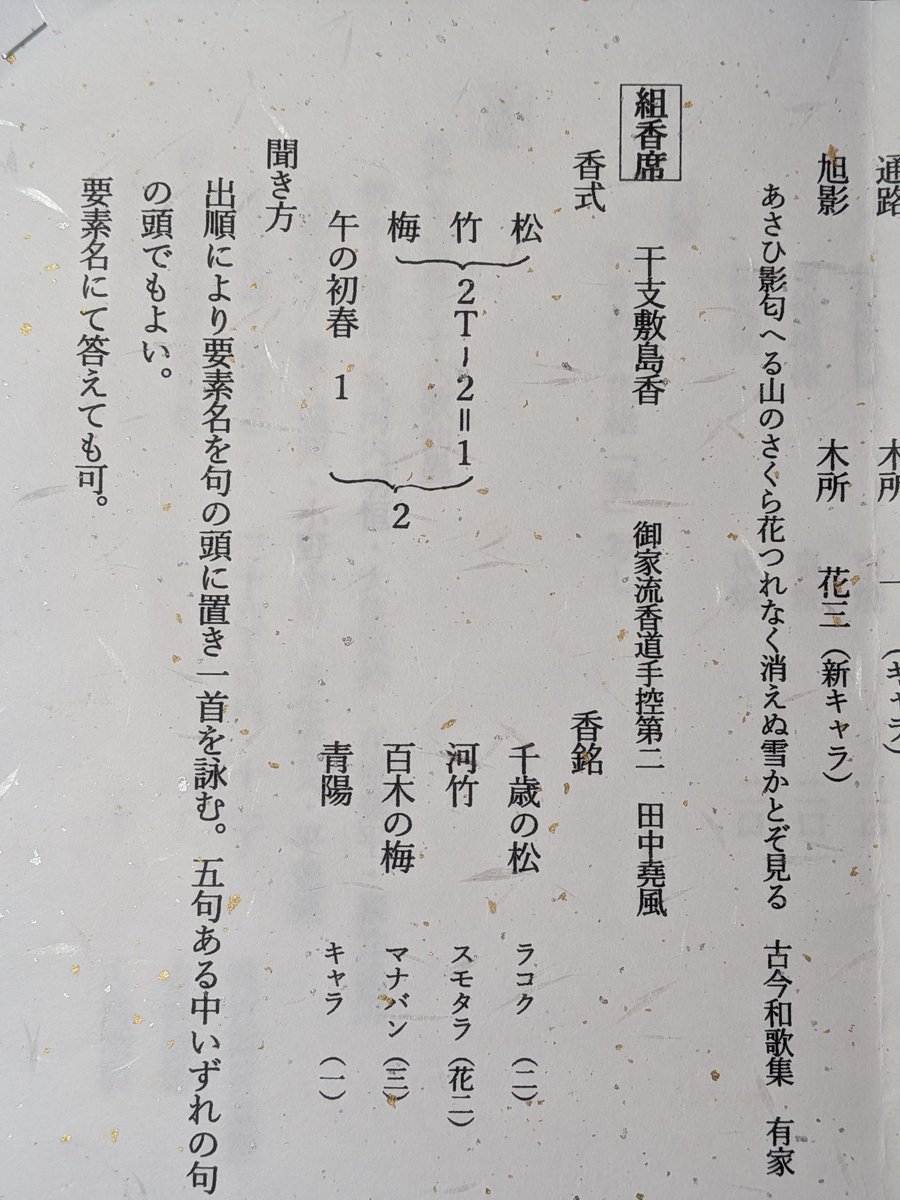 通路 木所 一(キャラ)
旭影 木所 花三(新キャラ)
あさひ影匂へる山のさくら花つれなく消えぬ雪かとぞ見る 古今和歌集 有家
組香席 干支敷島香 御家流香道手控第二 田中堯風
香式 香銘
松 千歳の松 ラコク (二)
竹 2T-2=1 河竹 スモタラ(花二)
梅 百木の梅 マナバン(三)
午の初春 1 青陽 キャラ (一)
2
聞き方
出順により要素名を句の頭に置き一首を詠む。五句ある中いずれの句
の頭でもよい。
要素名にて答えても可。